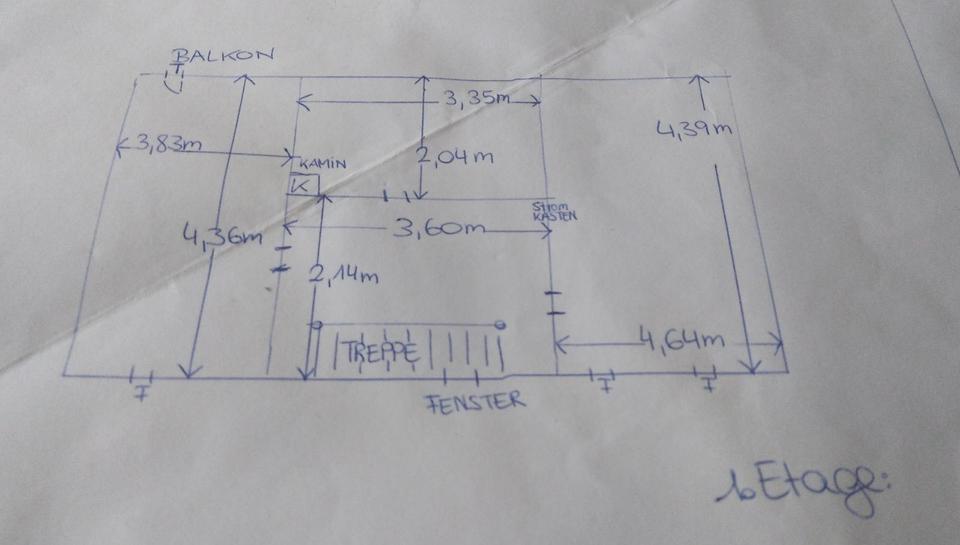 BALKON
T
3,35m
3,83m
4,39m
2,04m
KAMIN
K
Strom
KASTEN
4,36m
3,60m
2,14m
TREPPE
4,64m
F
F
F
FENSTER
Etage: